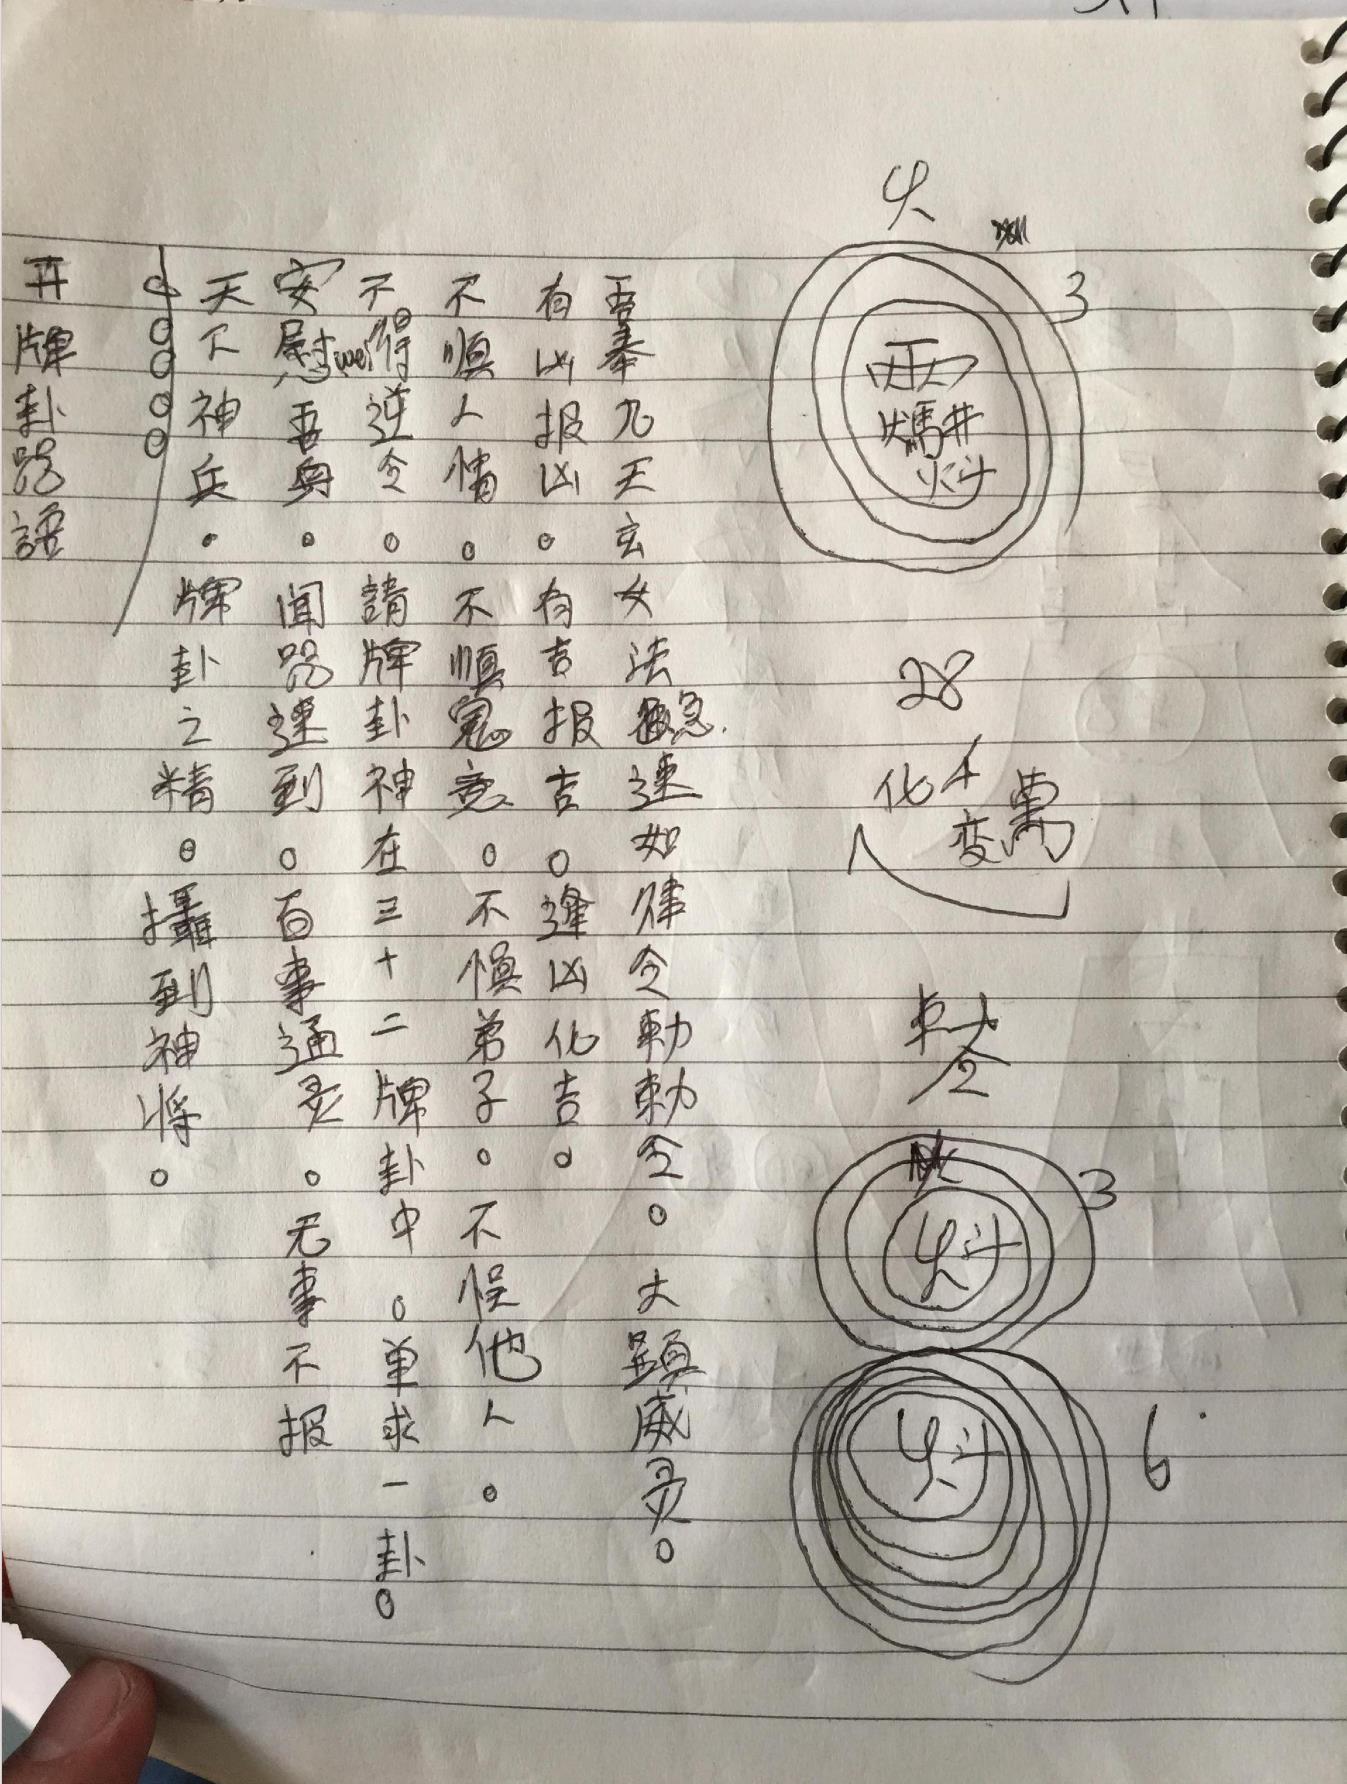 开牌卦咒語
天下神兵。牌卦之精。攝到神將。
安慰wei吾身。闻咒速到。百事通灵。无事不报
不得逆令。請牌卦神在三十二牌卦中。单求一卦。
不順人情。不順寃意。不慎弟子。不悮他人。
有凶报凶。有吉报吉。逢凶化吉。
吾奉九天玄女法急速如律令勅勅令。大顯威灵。
火
3
雨
28
化千
变萬
3
6